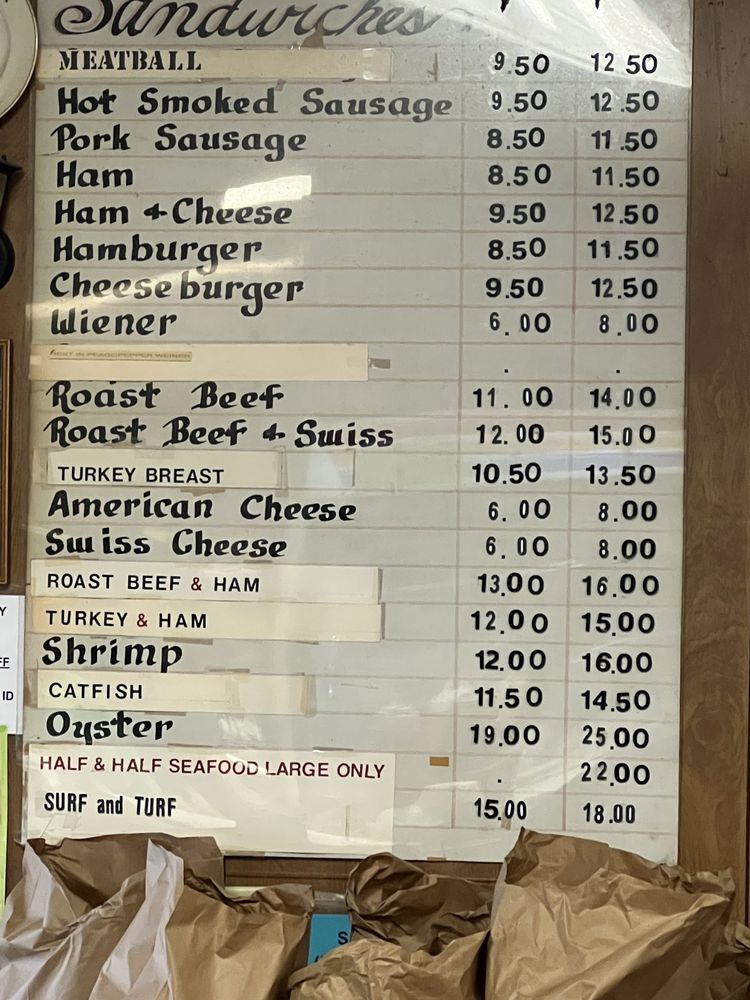 Sandwiches
MEATBALL 9.50 12 50
Hot Smoked Sausage 9.50 12.50
Pork Sausage 8.50 11.50
Ham 8.50 11.50
Ham & Cheese 9.50 12.50
Hamburger 8.50 11.50
Cheeseburger 9.50 12.50
Wiener 6.00 8.00
. .
Roast Beef 11.00 14.00
Roast Beef & Swiss 12.00 15.00
TURKEY BREAST 10.50 13.50
American Cheese 6.00 8.00
Swiss Cheese 6.00 8.00
ROAST BEEF & HAM 13.00 16.00
TURKEY & HAM 12.00 15.00
Shrimp 12.00 16.00
CATFISH 11.50 14.50
Oyster 19.00 25.00
HALF & HALF SEAFOOD LARGE ONLY . 22.00
SURF and TURF 15.00 18.00
Y
FF
ID
S